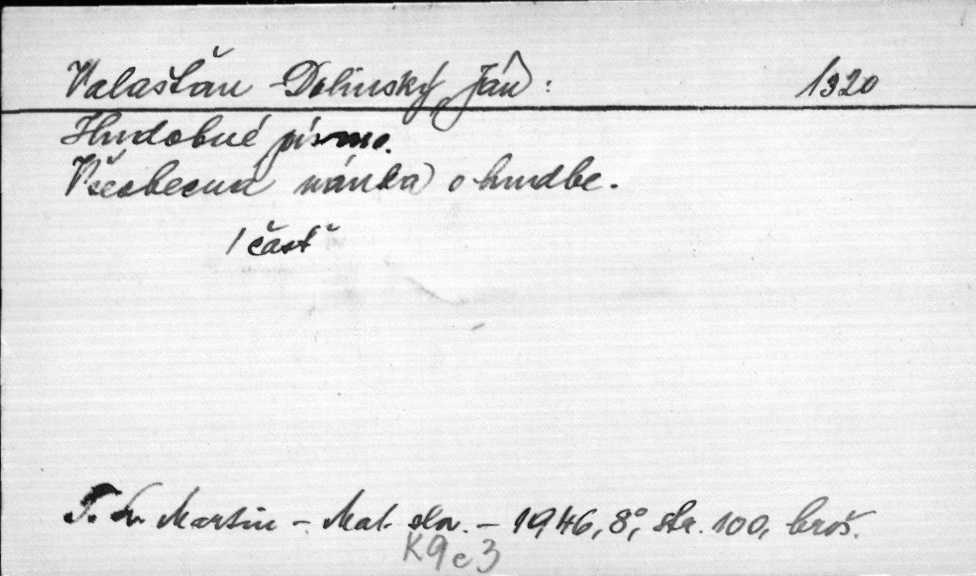 Valašťan-Dolinský, Ján: 1320
Hudobné písmo.
Všeobecná náuka o hudbe.
1 časť
T. Sv. Martin - Mat. slov. - 1946, 8°, str. 100, brož.
K9c3